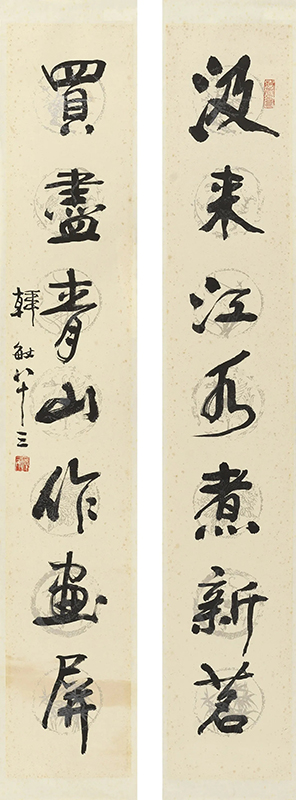 汲来江水煮新茗
買盡青山作畫屏
韓敏八十三